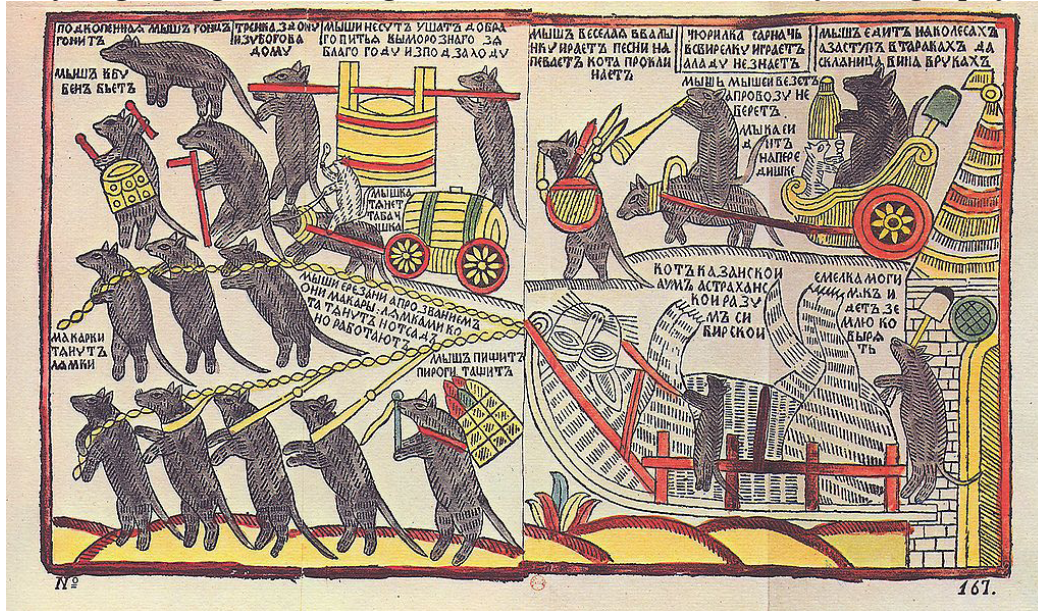 ПОДКОПЕННАЯ МЫШЪ ГОНЦЪ
ГОНИТЪ
ДОМУ
МЫШИ НЕСУТЪ УШАТЪ ДОБРА
ГО ПИТЬЯ ВЫМОРОЗНАГО ЗА
БЛАГО ГОДУ ИЗПОДЗАХОДУ
МЫШЪ ВЕСЕЛАЯ ВВАЛЫ
НКУ ИРАЕТЪ ПЕСНИ НА
ПЕВАЕТЪ КОТА ПРОКЛИ
НАЕТЪ
ЧЮРИЛКА САРНАЧЬ
ВСВИРЕЛКУ ИГРАЕТЪ
АЛАДУ НЕЗНАЕТЪ
МЫШЪ ЕДИТЪ НАКОЛЕСАХЪ
АЗАСТУПЪ ВТАРАКАХЪ ДА
СКЛАНИЦА ВИНА ВРУКАХЪ
МЫШЬ МЫШЕИ ВЕЗЕТЪ
АПРОВОЗУ НЕ
БЕРЕТЪ
НАПЕРЕ
ДИШКЕ
МЫШЪ ВБУ
БЕНЪ БЬЕТЪ
МЫШКА
ТЯНЕТ
ТАБАЧ
МЫШИ ЕРЕЗАНИ АПРОЗВАНИЕМЪ
ОНИ МАКАРЫ ЛАМКАМИ КО
ТА ТЯНУТЪ
НО РАБОТАЮТЪ
МАКАРКИ
ТАНУТЪ
ЛЯМКИ
МЫШЪ ПИЩИТЪ
ПИРОГИ ТАЩИТЪ
КОТЪ КАЗАНСКОИ
АУМЪ АСТРАХАНС
КОИ РАЗУ
МЪ СИ
БИРСКОИ
ЕМЕЛКА МОГИ
ЛЯКЪ И
ДЕТЪ ЗЕ
МЛЮ КО
ВЫРЯ
ТЬ
№
167.